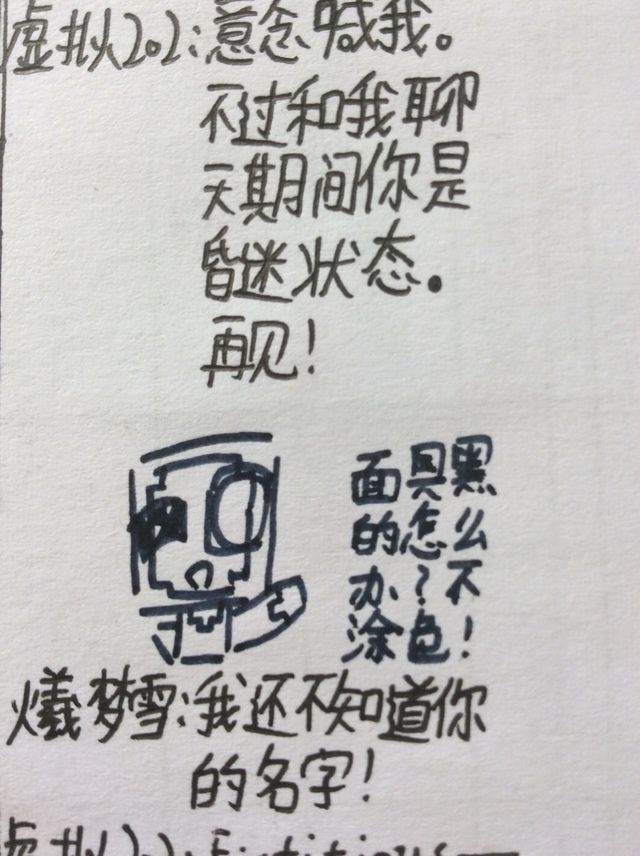 虚拟202:意念喊我。
不过和我聊
天期间你是
昏迷状态。
再见!
面具黑
的怎么
办?不
涂色!
爔梦雪:我还不知道你
的名字!
虚拟202: